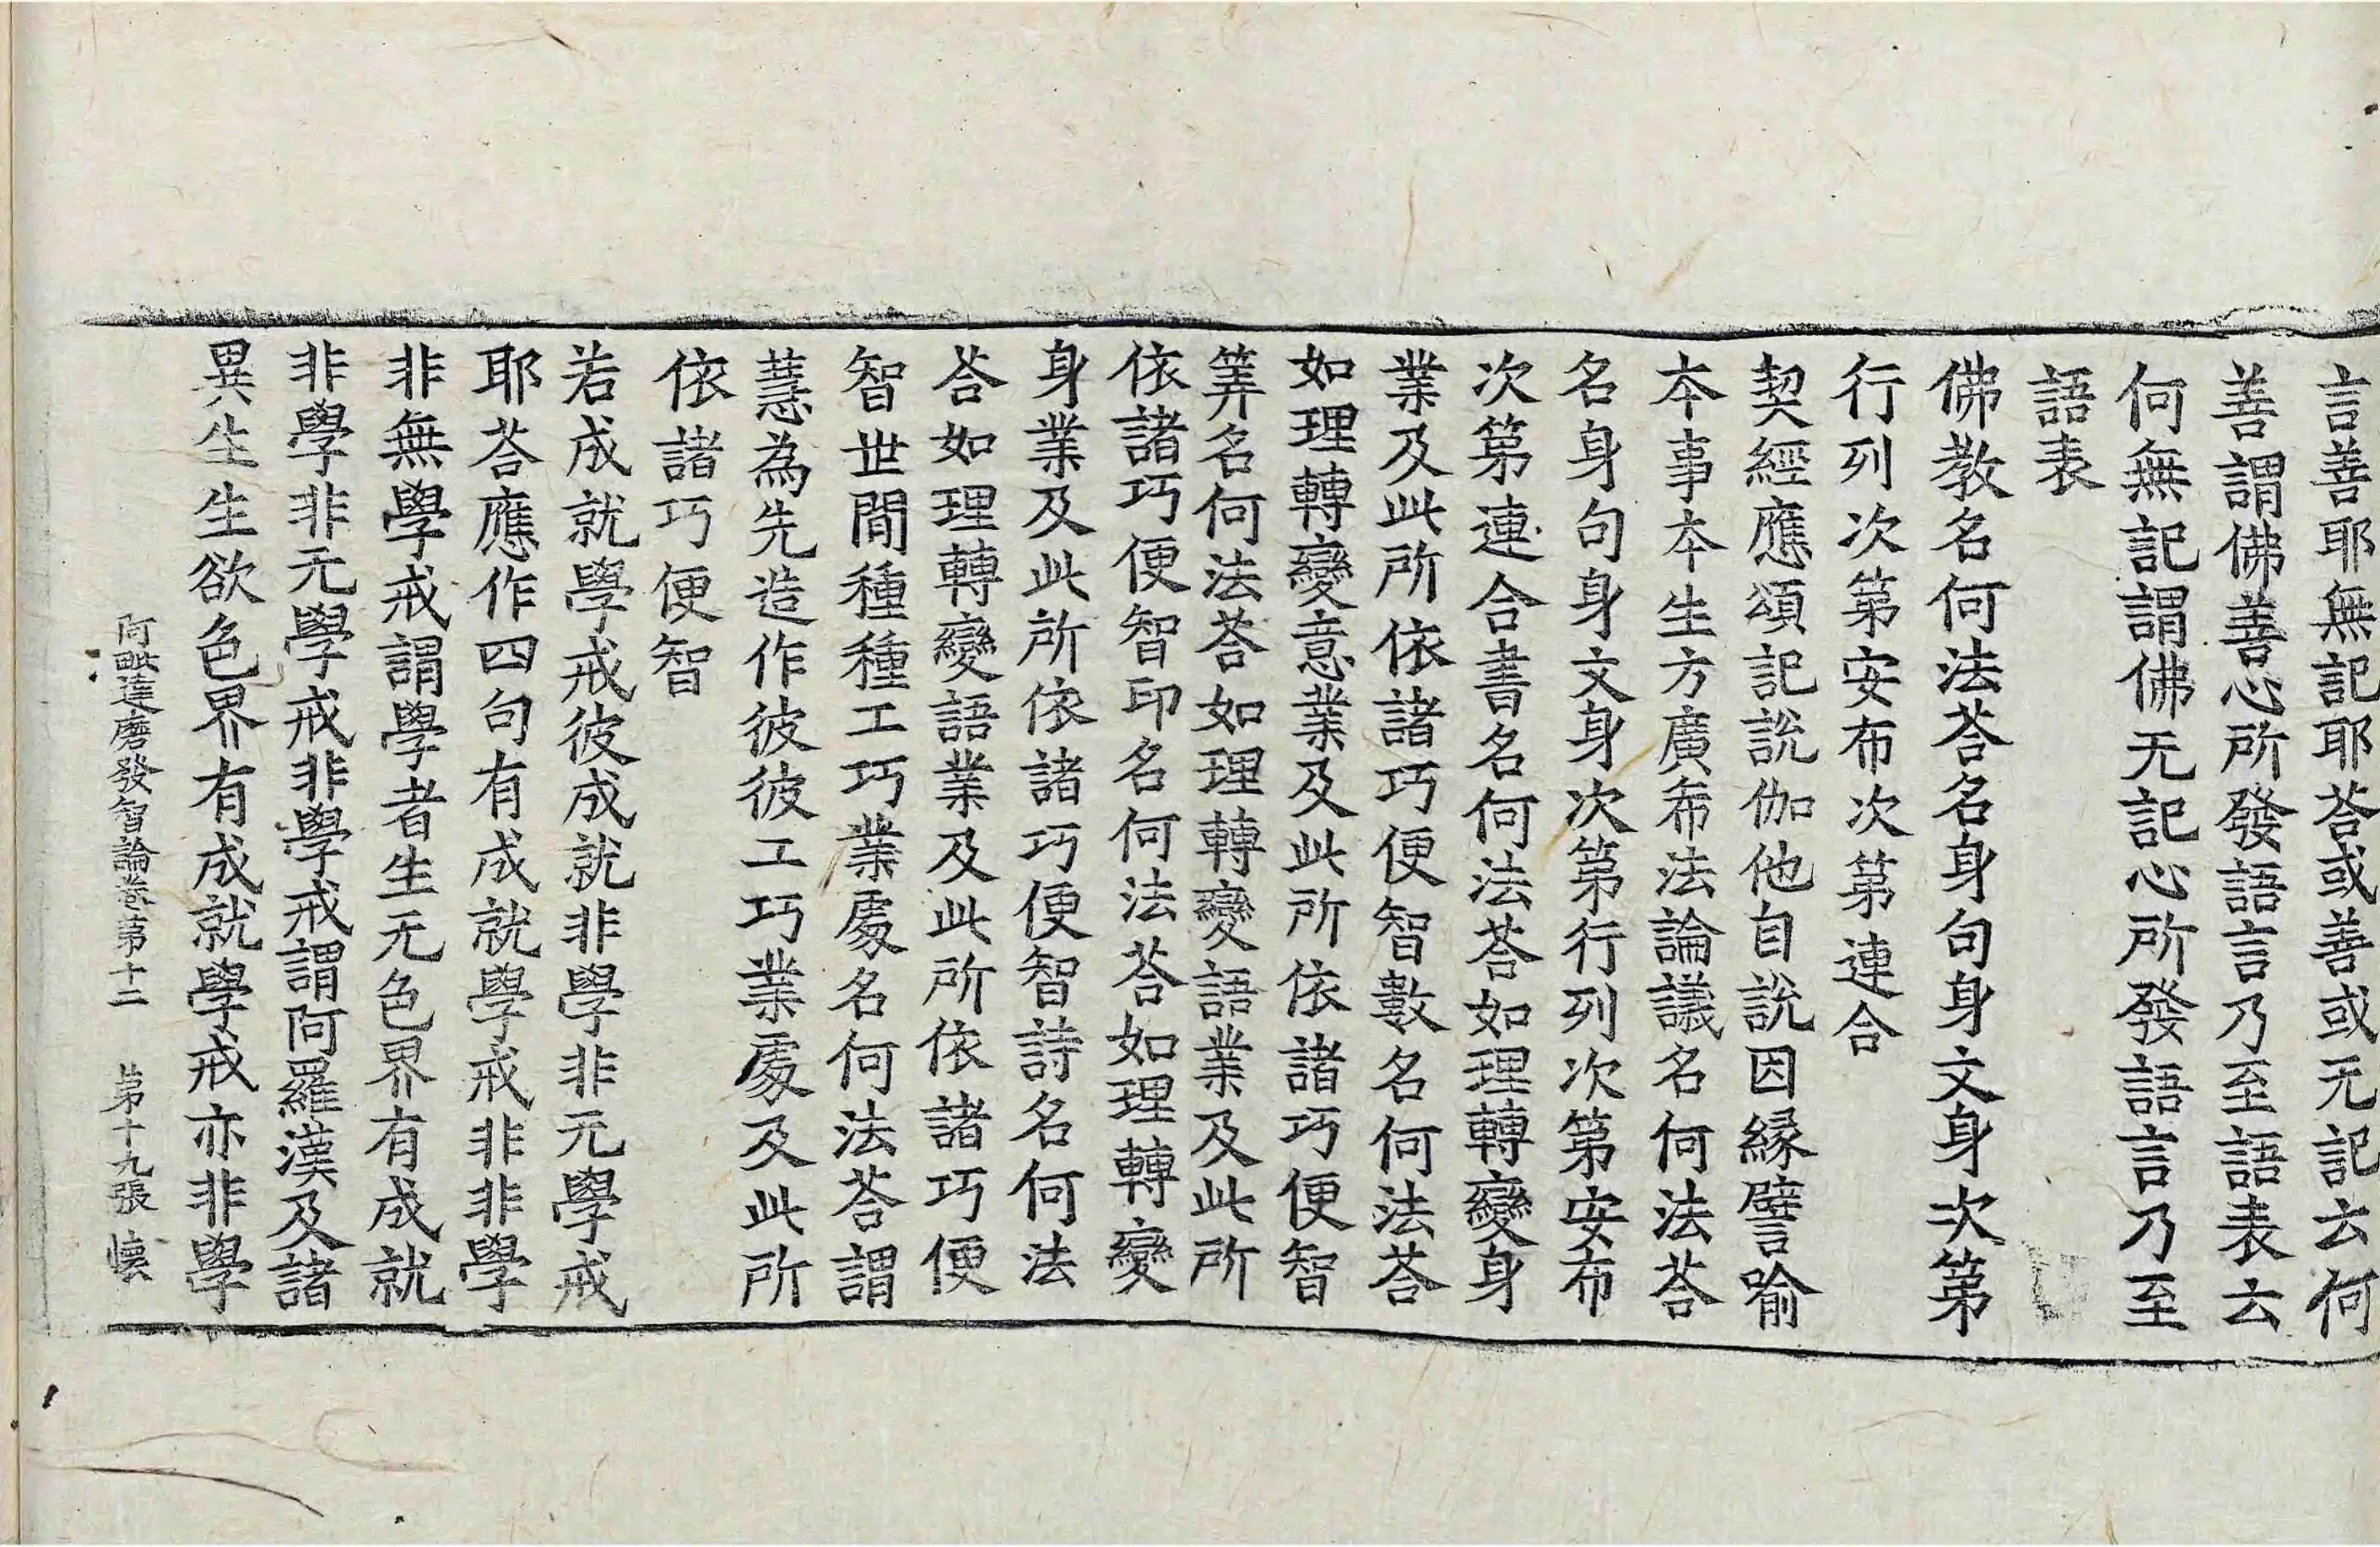 言善耶無記耶荅或善或无記云何
善謂佛善心所發語言乃至語表云
何無記謂佛无記心所發語言乃至
語表
佛教名何法荅名身句身文身次第
行列次第安布次第連合
契經應頌記說伽他自說因緣譬喻
本事本生方廣希法論議名何法荅
名身句身文身次第行列次第安布
次第連合書名何法荅如理轉變身
業及此所依諸巧便智數名何法荅
如理轉變意業及此所依諸巧便智
筭名何法荅如理轉變語業及此所
依諸巧便智印名何法荅如理轉變
身業及此所依諸巧便智詩名何法
荅如理轉變語業及此所依諸巧便
智世間種種工巧業處名何法荅謂
慧為先造作彼彼工巧業處及此所
依諸巧便智
若成就學戒彼成就非學非无學戒
耶荅應作四句有成就學戒非非學
非無學戒謂學者生无色界有成就
非學非无學戒非學戒謂阿羅漢及諸
異生生欲色界有成就學戒亦非學
阿毗達磨發智論卷第十二 第十九張 懷